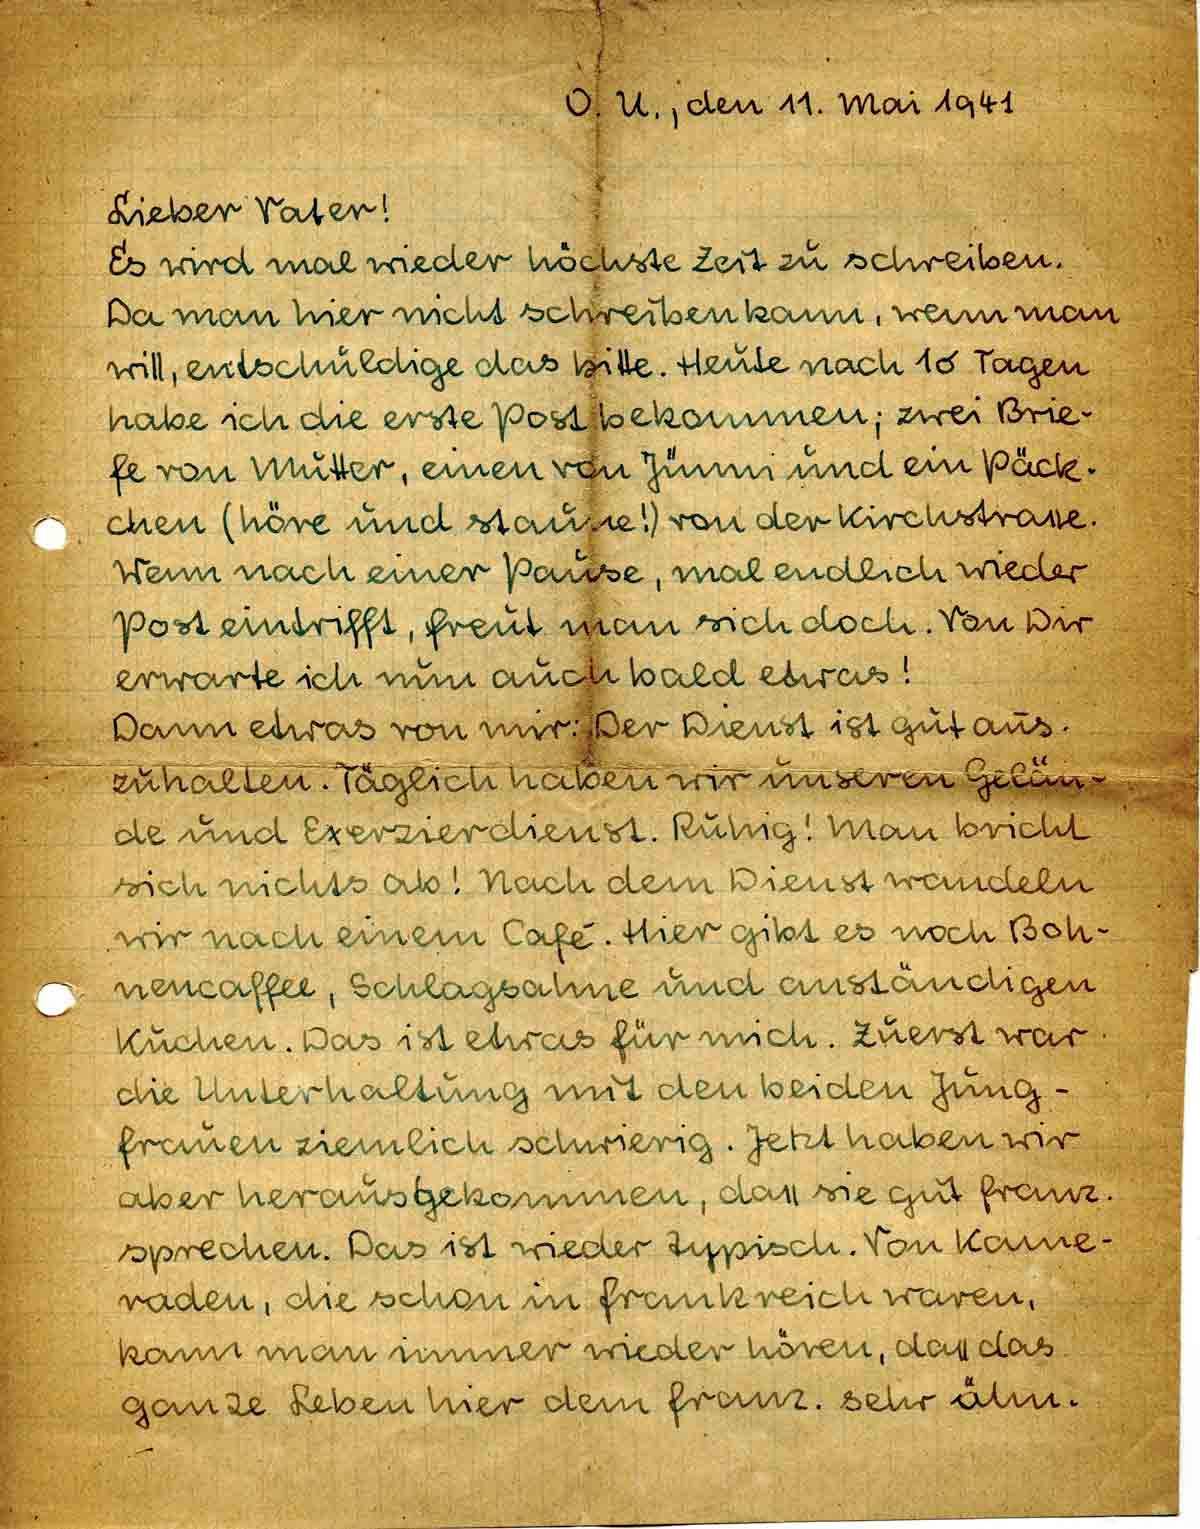 O. U., den 11. Mai 1941
Lieber Vater!
Es wird mal wieder höchste Zeit zu schreiben.
Da man hier nicht schreiben kann, wenn man
will, entschuldige das bitte. Heute nach 10 Tagen
habe ich die erste Post bekommen; zwei Brie-
fe von Mutter, einen von und ein Päck-
chen (höre und staune!) von der Kirchstrasse.
Wenn nach einer Pause, mal endlich wieder
Post eintrifft, freut man sich doch. Von Dir
erwarte ich nun auch bald etwas!
Dann etwas von mir: Der Dienst ist gut aus-
zuhalten. Täglich haben wir unseren Gelän-
de und Exerzierdienst. Ruhig! Man bricht
sich nichts ab! Nach dem Dienst wandeln
wir nach einem Café. Hier gibt es noch Boh-
nencaffee, Schlagsahne und anständigen
Kuchen. Das ist etwas für mich. Zuerst war
die Unterhaltung mit den beiden Jung-
frauen ziemlich schwierig. Jetzt haben wir
aber herausgekommen, dass sie gut franz.
sprechen. Das ist wieder typisch. Von Kame-
raden, die schon in Frankreich waren,
kann man immer wieder hören, dass das
ganze Leben hier dem franz. sehr ähn-